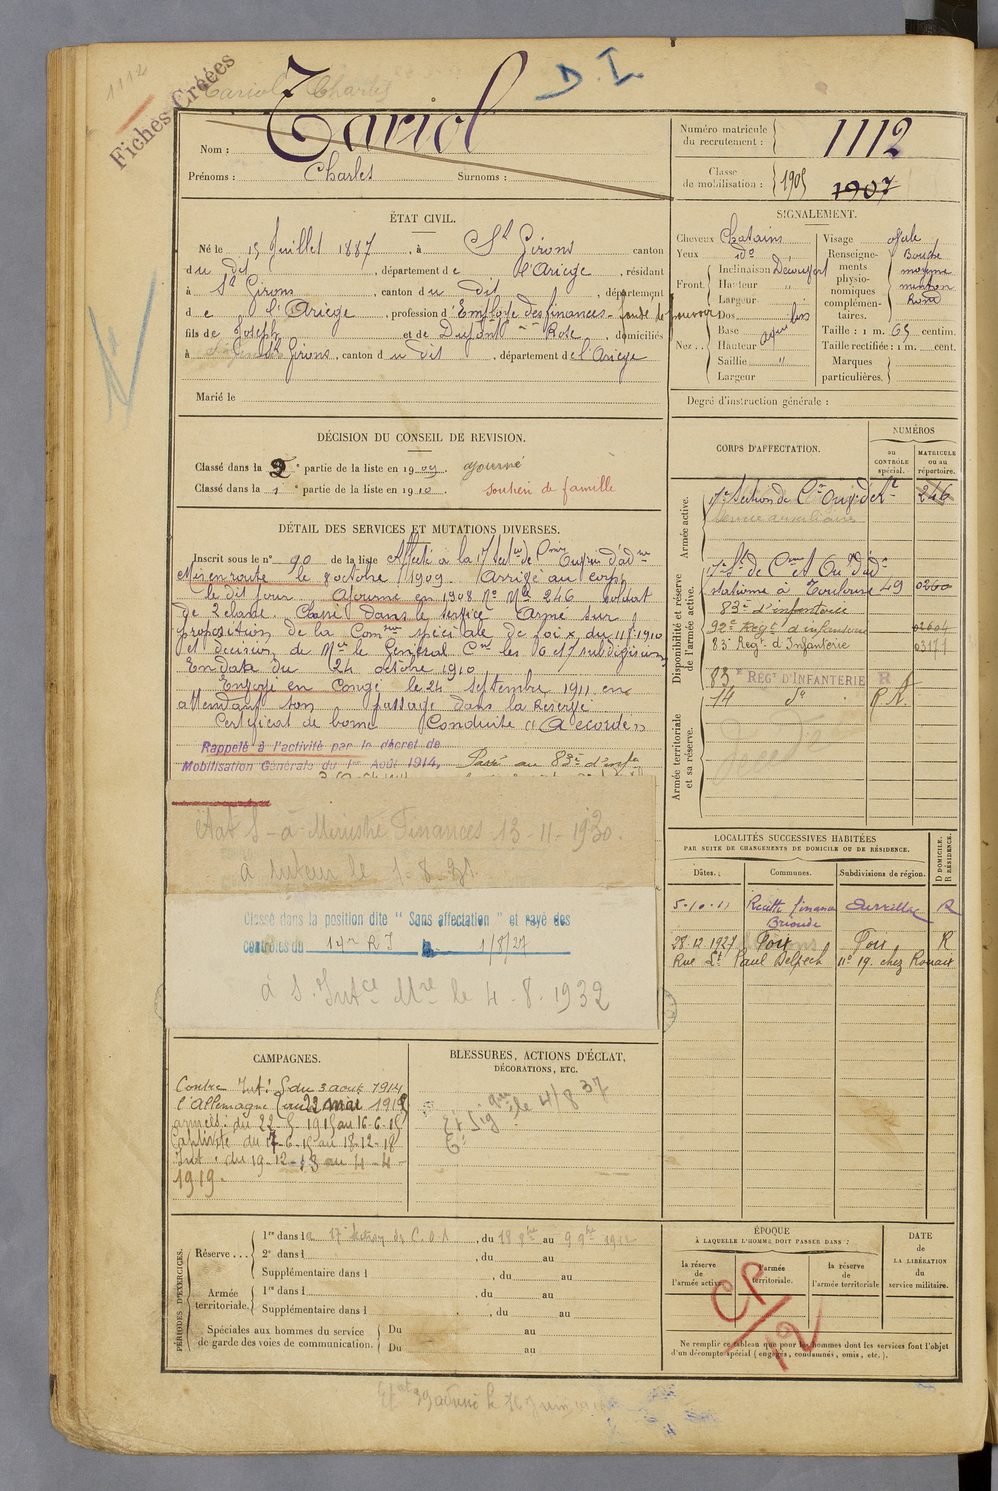 1112
Fiches Créées
Tariol Charles
D. I.
Nom : Tariol
Prénoms : Charles Surnoms :
Numéro matricule du recrutement : 1112
Classe de mobilisation : 1905 1907
ÉTAT CIVIL.
Né le 15 Juillet 1887, à St Girons canton
du dit, département de l'Ariège, résidant
à St Girons, canton du dit, département
de l'Ariège, profession d'Employé des finances - fondé de pouvoir
fils de Joseph et de Dufont Rose, domiciliés
à St Girons, canton du dit, département de l'Ariège
Marié le
SIGNALEMENT.
Cheveux chatains
Yeux do
Front. Inclinaison Découvert
Hauteur "
Largeur
Nez .. Dos
Base
Hauteur
Saillie "
Largeur
Visage ovale
Renseignements physionomiques complémentaires. Bouche moyenne menton Rond
Taille : 1 m. 65 centim.
Taille rectifiée : 1 m. cent.
Marques particulières.
Degré d'instruction générale :
DÉCISION DU CONSEIL DE REVISION.
Classé dans la 2e partie de la liste en 1909 ajourné
Classé dans la 1e partie de la liste en 1910 soutien de famille
DÉTAIL DES SERVICES ET MUTATIONS DIVERSES.
Inscrit sous le no 90 de la liste Affecté à la 17 Section de Commis Ouvriers d'adon
Mis en route le 8 octobre 1909. Arrivé au corps
le dit jour. Ajourné en 1908 No Mle 246 soldat
de 2e classe. Classé dans le service Armé sur
proposition de la Comon spéciale de Foix du 11-8-1910
et décision de Mr le Général Cmt les 6 et 7 subdivisions
En date du 24 octobre 1910
Envoyé en Congé le 24 septembre 1911 en
attendant son passage dans la Réserve
Certificat de bonne Conduite "Accordé"
Rappelé à l'activité par le décret de
Mobilisation Générale du 1er Août 1914, Passé au 83e d'infie
Etat S - à Ministre Finances 13-11-1930.
Classé dans la position dite " Sans affectation " et rayé des
contrôles du 14me R I le 1/8/27
à S. Intce Mre le 4-8-1932
CORPS D'AFFECTATION.
NUMÉROS
au CONTRÔLE spécial.
MATRICULE ou au répertoire.
Armée active.
17e Section de Cis Ouv. d'At 246
Service auxiliaire
Disponibilité et réserve de l'armée active.
17e Son de Cis et Ou. d'Ad.
stationné à Toulouse 49
83e d'infanterie
92e Régt d'infanterie
83e Regt d'Infanterie
83e REGt D'INFANTERIE R
Armée territoriale et sa réserve.
14 do
LOCALITÉS SUCCESSIVES HABITÉES
PAR SUITE DE CHANGEMENTS DE DOMICILE OU DE RÉSIDENCE.
Dates. Communes. Subdivisions de région. D DOMICILE. R RÉSIDENCE.
5-10-11 Recette finances Brioude Aurillac R
28.12.1927 Foix Foix R
Rue Lt Paul Delpech no 19. chez Rouaix
CAMPAGNES.
Contre Int: du 3 août 1914
l'Allemagne au 22 mai 1915
armées: du 22-5-1915 au 16-6-15
Captivité du 17-6-15 au 18-12-18
Int: du 19-12-18 au 4-4-
1919.
BLESSURES, ACTIONS D'ÉCLAT,
DÉCORATIONS, ETC.
le 4/8 37
PÉRIODES D'EXERCICES.
Réserve ... 1re dans la 17e Section de C.O.A, du 18 8bre au 9 9bre 1912
2e dans l , du au
Supplémentaire dans l , du au
Armée territoriale. 1re dans l , du au
Supplémentaire dans l , du au
Spéciales aux hommes du service de garde des voies de communication. Du au
Du au
ÉPOQUE
À LAQUELLE L'HOMME DOIT PASSER DANS :
la réserve de l'armée active
l'armée territoriale.
la réserve de l'armée territoriale
DATE de LA LIBÉRATION du service militaire.
CP/12
Ne remplir ce tableau que pour les hommes dont les services font l'objet
d'un décompte spécial (engagés, condamnés, omis, etc.).